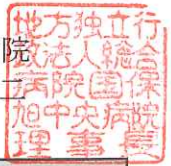 院
二
地方独立行
政法人総合
病院国保
旭中央病院
理事長